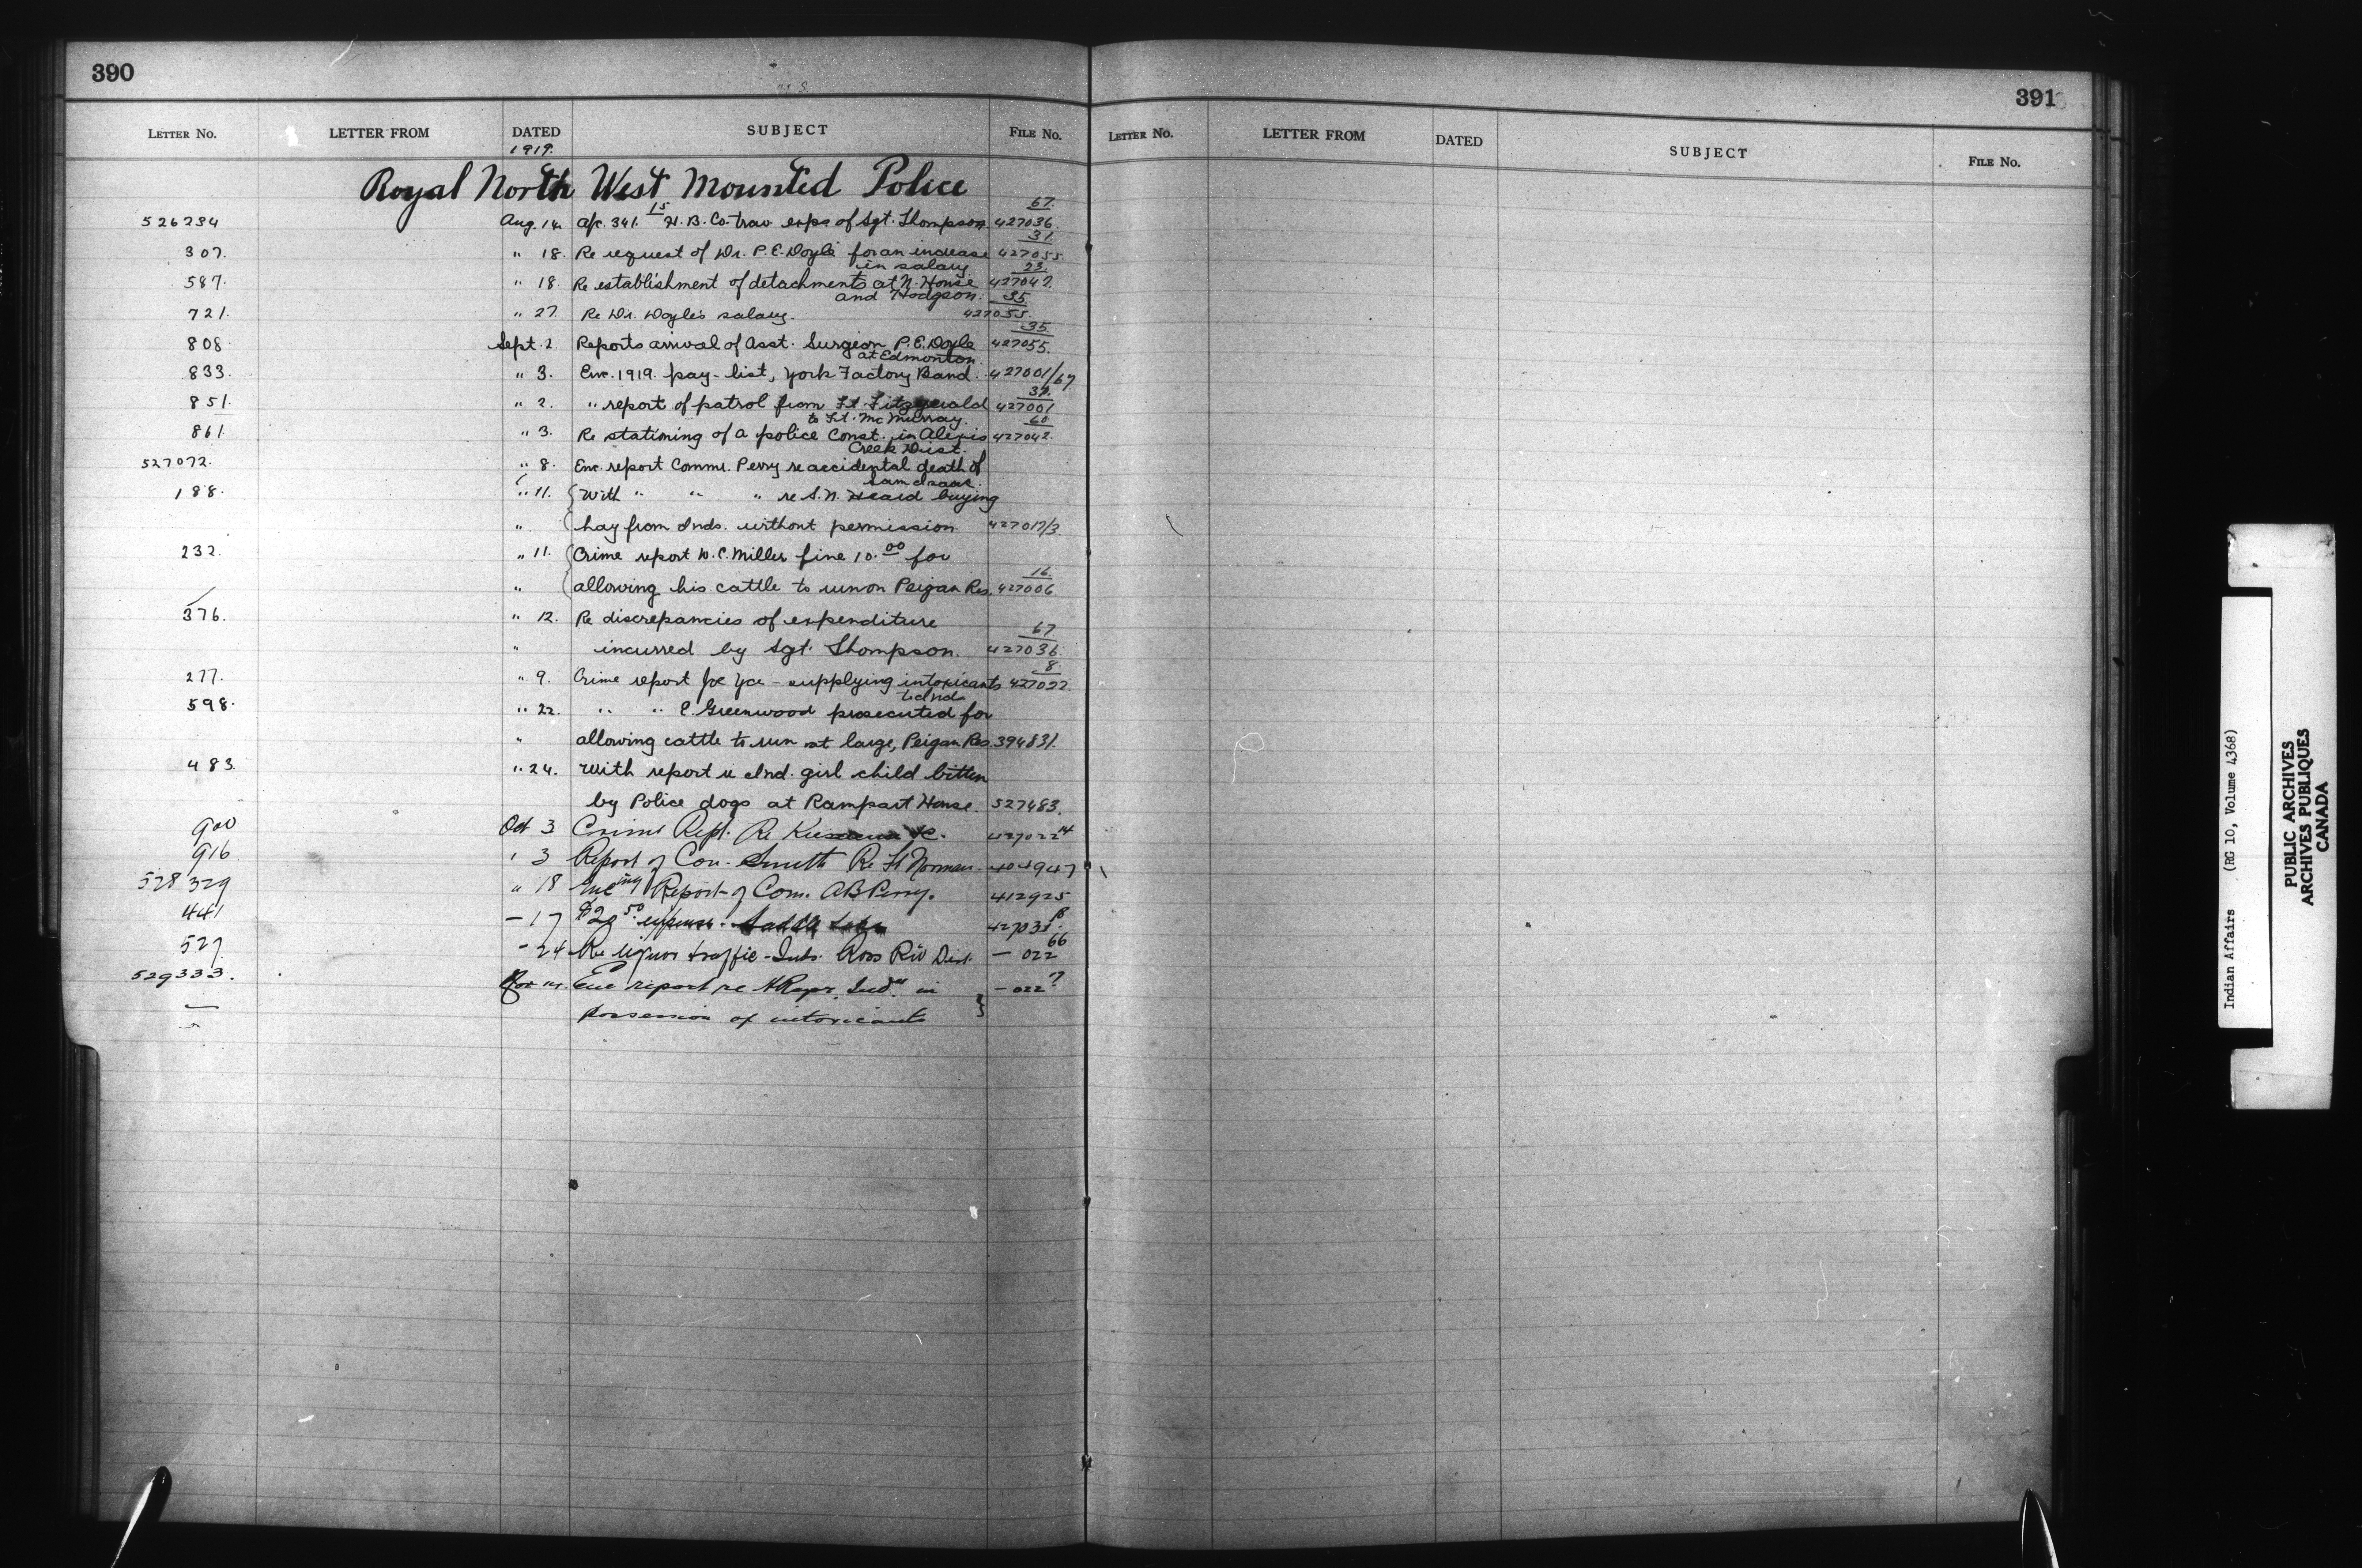 390
LETTER No. LETTER FROM DATED SUBJECT FILE No.
1919.
Royal North West Mounted Police
526234 Aug. 14. a/c. 341.15 H. B. Co. trav exps of Sgt. Thompson 67 427036.
307. " 18. Re request of Dr. P. E. Doyle for an increase 31 427055.
in salary
587. " 18. Re establishment of detachments at N. House 23 427047.
and Hodgson.
721. " 27. Re Dr. Doyle's salary. 35 427055.
808 Sept. 2. Reports arrival of Asst. Surgeon P. E. Doyle 35 427055.
at Edmonton.
833. " 3. Enc. 1919. pay-list, York Factory Band. 427001/67
851. " 2. " report of patrol from Ft. Fitzgerald 427001
to Ft. McMurray.
861. " 3. Re stationing of a police Const. in Alexis 60 427042.
Creek Dist.
527072. " 8. Enc. report Commr. Perry re accidental death of
Sam Isaac.
188. " 11. With " " " re S. N. Heard buying
" hay from Inds. without permission. 427017/3
232. " 11. Crime report W. C. Miller fine 10.00 for
" allowing his cattle to run on Peigan Res. 16 427006
376. " 12. Re discrepancies of expenditure
" incurred by Sgt. Thompson. 67 427036.
277. " 9. Crime report Joe Yce - supplying intoxicants 8 427022.
to Inds
598. " 22. " " E. Greenwood prosecuted for
" allowing cattle to run at large, Peigan Res. 394831.
483. " 24. With report re Ind. girl child bitten
by Police dogs at Rampart House. 527483.
900 Oct 3 Crime Rept. Re 427022 14
916 " 3 Report of Con. Smith Re Ft Norman 404947
528329 " 18 Encing Report of Com. A B Perry. 412925
441 - 17 $20.50 expenses. Saddle Lake 427035 18
527 - 24 Re liquor traffic - Inds. Ross Riv Dist. - 022 66
529333. Nov 14. Enc report re Inds in - 022 7
possession of intoxicants
391
LETTER No. LETTER FROM DATED SUBJECT FILE No.
Indian Affairs (RG 10, Volume 4368)
PUBLIC ARCHIVES
ARCHIVES PUBLIQUES
CANADA